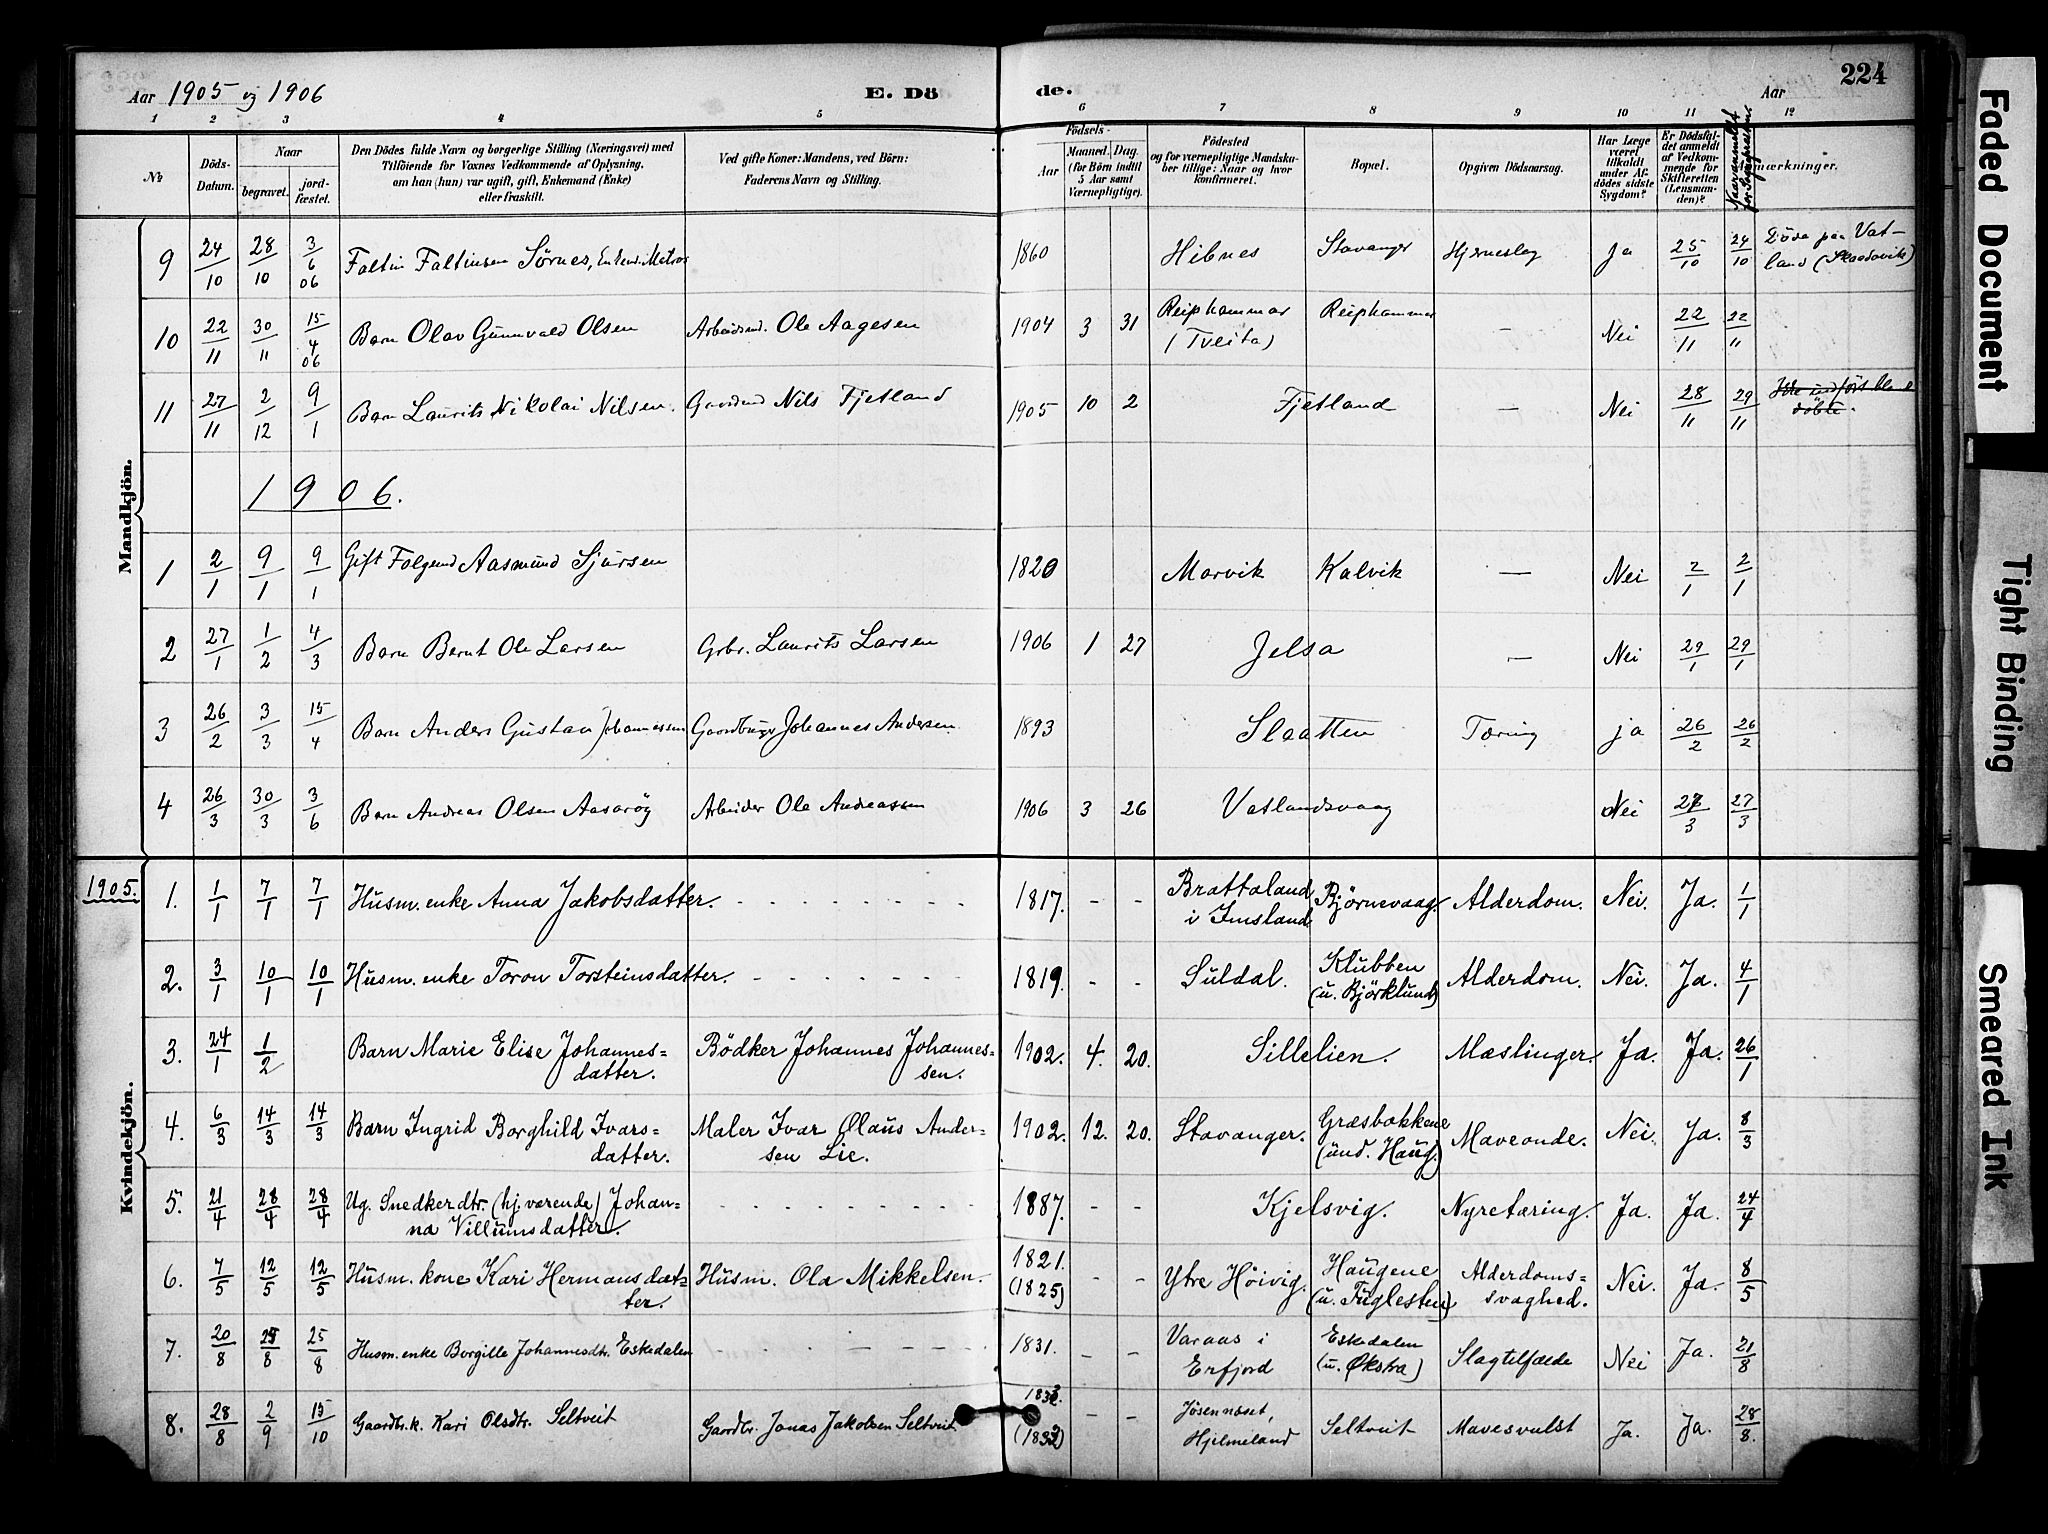 Aar 1905 og 1906
E. Dö
de.
Aar
224
1 2 3 4 5 6 7 8 9 10 11 12
№
Döds-
Datum.
Naar
begravet.
jord-
fæstet.
Den Dödes fulde Navn og borgerlige Stilling (Næringsvei) med
Tilföiende for Voxnes Vedkommende af Oplysning,
om han (hun) var ugift, gift, Enkemand (Enke)
eller fraskilt.
Ved gifte Koner: Mandens, ved Börn:
Faderens Navn og Stilling.
Födsels-
Aar
Maaned. Dag.
(for Börn indtil
5 Aar samt
Værnepligtige).
Födested
og for værnepligtige Mandska-
ber tillige: Naar og hvor
konfirmeret.
Bopæl.
Opgiven Dödsaarsag.
Har Læge
været
tilkaldt
under Af-
dödes sidste
Sygdom?
Er Dödsfal-
det anmeldt
af Vedkom-
mende for
Skifteretten
(Lensman-
den)?
Naar anmeldt
for Sognepresten.
mærkninger.
Mandkjön.
9 24/10 28/10 3/6 06 Faltin Faltinsen Sörnes, Enkem. Matros 1860 Hibnes Stavanger Hjerneslag Ja 25/10 24/10 Döde paa Vat-
land (
10 22/11 30/11 15/4 06 Barn Olav Gunnvald Olsen Arbeidsmd. Ole Aagesen 1904 3 31 Reiphammar
(Tveita) Reiphammar — Nei 22/11 22/11
11 27/11 2/12 9/1 Barn Laurits Nikolai Nilsen. Gaardmd Nils Fjetland 1905 10 2 Fjetland — Nei 28/11 29/11 Ikke indfört bl.
döbte.
1906.
1 2/1 9/1 9/1 Gift Folgemd Aasmund Sjursen 1820 Marvik Kalvik — Nei 2/1 2/1
2 27/1 1/2 4/3 Barn Bernt Ole Larsen Grbr. Laurits Larsen 1906 1 27 Jelsa — Nei 29/1 29/1
3 26/2 3/3 15/4 Barn Anders Gustav Johannessen Gaardbruger Johannes Andersen 1893 Slaatten Tæring ja 26/2 26/2
4 26/3 30/3 3/6 Barn Andreas Olsen Aasaröy Arbeider Ole Andreassen 1906 3 26 Vatlandsvaag Nei 27/3 27/3
1905.
Kvindekjön.
1. 1/1 7/1 7/1 Husm. enke Anna Jakobsdatter. 1817. - - Brattaland
i Imsland Björnevaag. Alderdom. Nei. Ja. 1/1
2. 3/1 10/1 10/1 Husm. enke Toron Torsteinsdatter. 1819. - - Suldal. Klubben
(u. Björklund) Alderdom. Nei. Ja. 4/1
3. 24/1 1/2 Barn Marie Elise Johannes=
datter. Bödker Johannes Johannes=
sen. 1902. 4. 20. Sillelien. Mæslinger. Ja. Ja. 26/1
4. 6/3 14/3 14/3 Barn Ingrid Borghild Ivars=
datter. Maler Ivar Olaus Ander-
sen Lie. 1902. 12. 20. Stavanger. Græsbakkene
(und. Haug.) Maveonde. Nei. Ja. 8/3
5. 21/4 28/4 28/4 Ug. Snedkerdtr. (hj.værende) Johan=
na Villumsdatter. 1887. - - Kjelsvig. Nyretæring. Ja. Ja. 24/4
6. 7/5 12/5 12/5 Husm. kone Kari Hermansdat=
ter. Husm. Ola Mikkelsen. 1821.
(1825) - - Ytre Höivig. Haugene
(u. Fuglesten) Alderdoms=
svaghed. Nei. Ja. 8/5
7. 20/8 25/8 25/8 Husm. enke Borgille Johannesdtr. Eskedalen 1831. - - Varaas i
Erfjord Eskedalen
(u. Økstra) Slagtilfælde Nei Ja. 21/8
8. 28/8 2/9 15/10 Gaardbr.k. Kari Olsdtr. Seltveit Gaardbr. Jonas Jakobsen Seltveit - - Jösenneset,
Hjelmeland Seltveit Mavesvulst Ja. Ja. 28/8.
Faded Document
Tight Binding
Smeared Ink